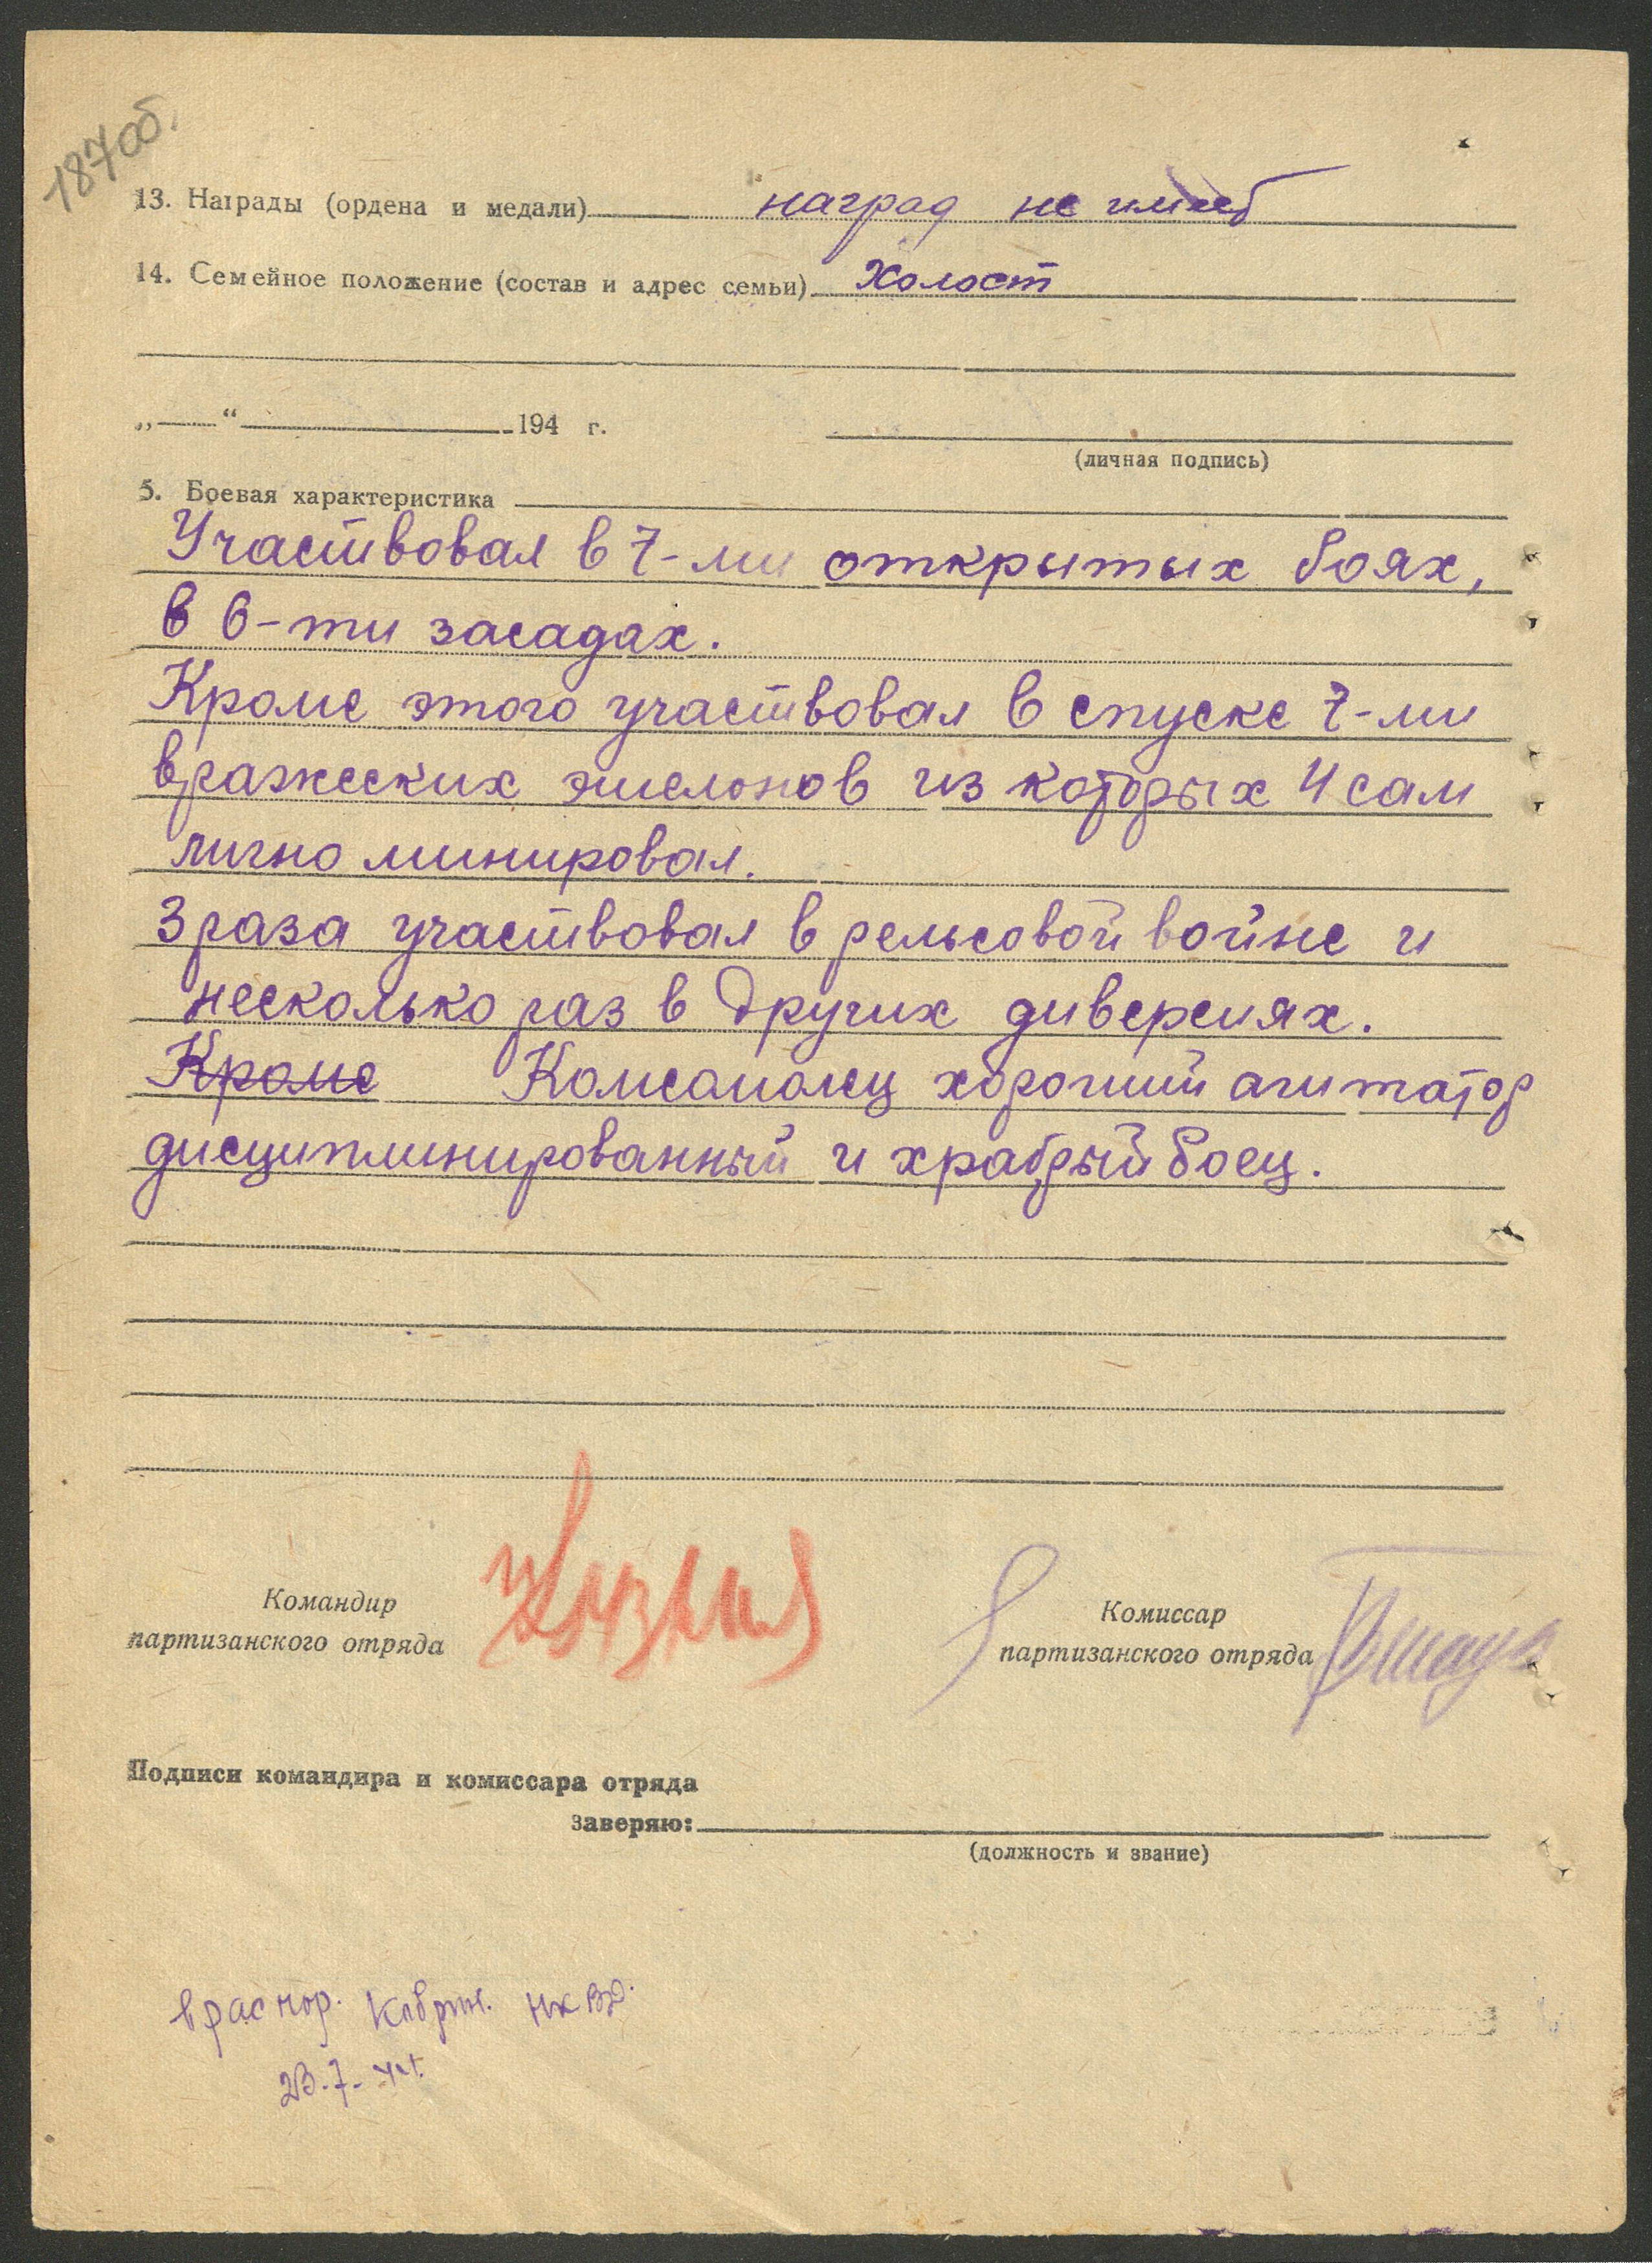 187об.
13. Награды (ордена и медали) наград не имеет
14. Семейное положение (состав и адрес семьи) Холост
„ “ 194 г.
(личная подпись)
5. Боевая характеристика
Участвовал в 7-ми открытых боях,
в 6-ти засадах.
Кроме этого участвовал в спуске 7-ми
вражеских эшелонов из которых 4 сам
лично минировал.
3 раза участвовал в рельсовой войне и
несколько раз в других диверсиях.
Кроме Комсомолец хороший агитатор
дисциплинированный и храбрый боец.
Командир
партизанского отряда
Комиссар
партизанского отряда
Подписи командира и комиссара отряда
заверяю:
(должность и звание)
в распор. Кобрин. НКВД.
23-7-44.